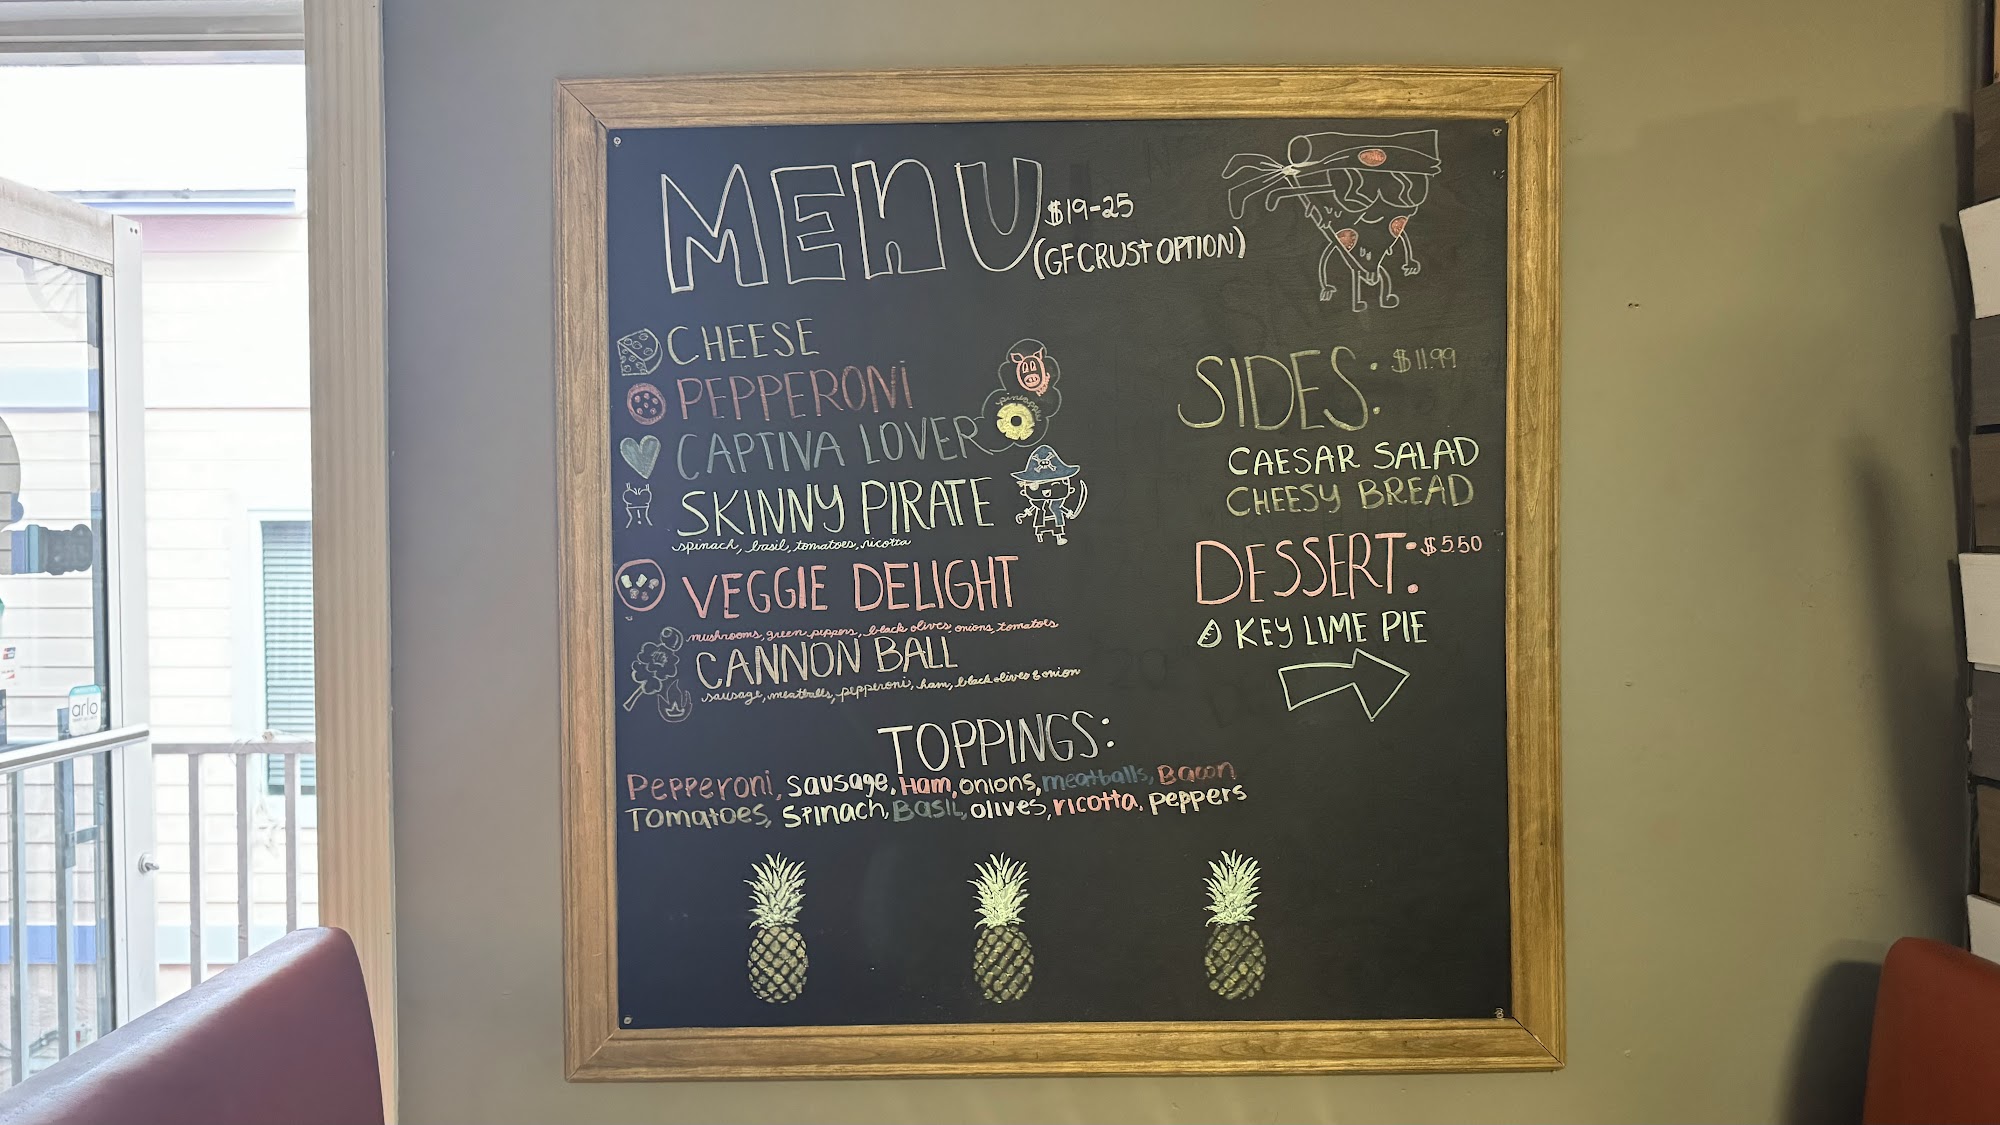 MENU
$19-25
(GF CRUST OPTION)
CHEESE
PEPPERONi
CAPTIVA LOVER
pineapple
SKINNY PIRATE
spinach, basil, tomatoes, ricotta
VEGGIE DELIGHT
mushrooms, green peppers, black olives, onions, tomatoes
CANNON BALL
sausage, meatballs, pepperoni, ham, black olives & onion
SIDES: $11.99
CAESAR SALAD
CHEESY BREAD
DESSERT: $5.50
KEY LIME PIE
TOPPINGS:
Pepperoni, sausage, Ham, onions, meatballs, Bacon
Tomatoes, spinach, Basil, olives, ricotta, peppers
arlo